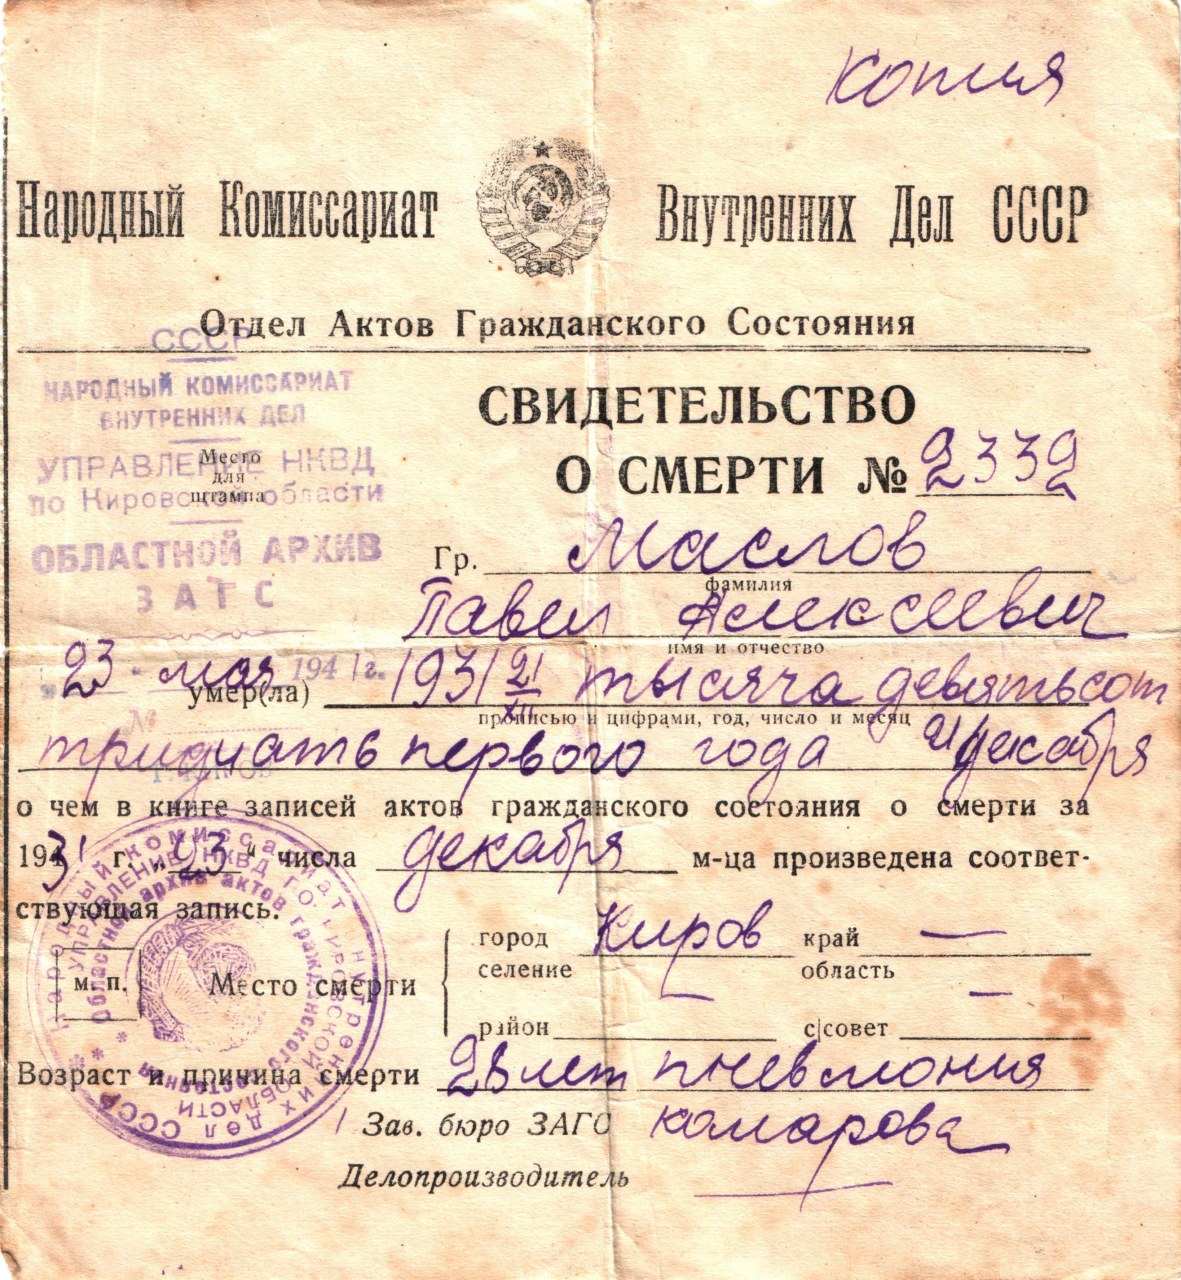 Копия
Народный Комиссариат Внутренних Дел СССР
Отдел Актов Гражданского Состояния
СССР
НАРОДНЫЙ КОМИССАРИАТ
ВНУТРЕННИХ ДЕЛ
УПРАВЛЕНИЕ НКВД
по Кировской области
ОБЛАСТНОЙ АРХИВ
ЗАГС
Место
для
штампа
„23 - мая 1941 г.
№
г. Киров
СВИДЕТЕЛЬСТВО
О СМЕРТИ № 2332
Гр. Маслов
фамилия
Павел Алексеевич
имя и отчество
умер(ла) 1931 21/XII тысяча девятьсот
прописью и цифрами, год, число и месяц
тридцать первого года 21 декабря
о чем в книге записей актов гражданского состояния о смерти за
1931 г. „23“ числа декабря м-ца произведена соответ-
ствующая запись.
Народный комиссариат внутренних дел СССР
УПРАВЛЕНИЕ НКВД ПО КИРОВСКОЙ ОБЛАСТИ
Областной архив актов гражданского состояния
М. П.
Место смерти
город Киров край —
селение — область —
район с|совет
Возраст и причина смерти 28 лет пневмония
Зав. бюро ЗАГС Комарова
Делопроизводитель